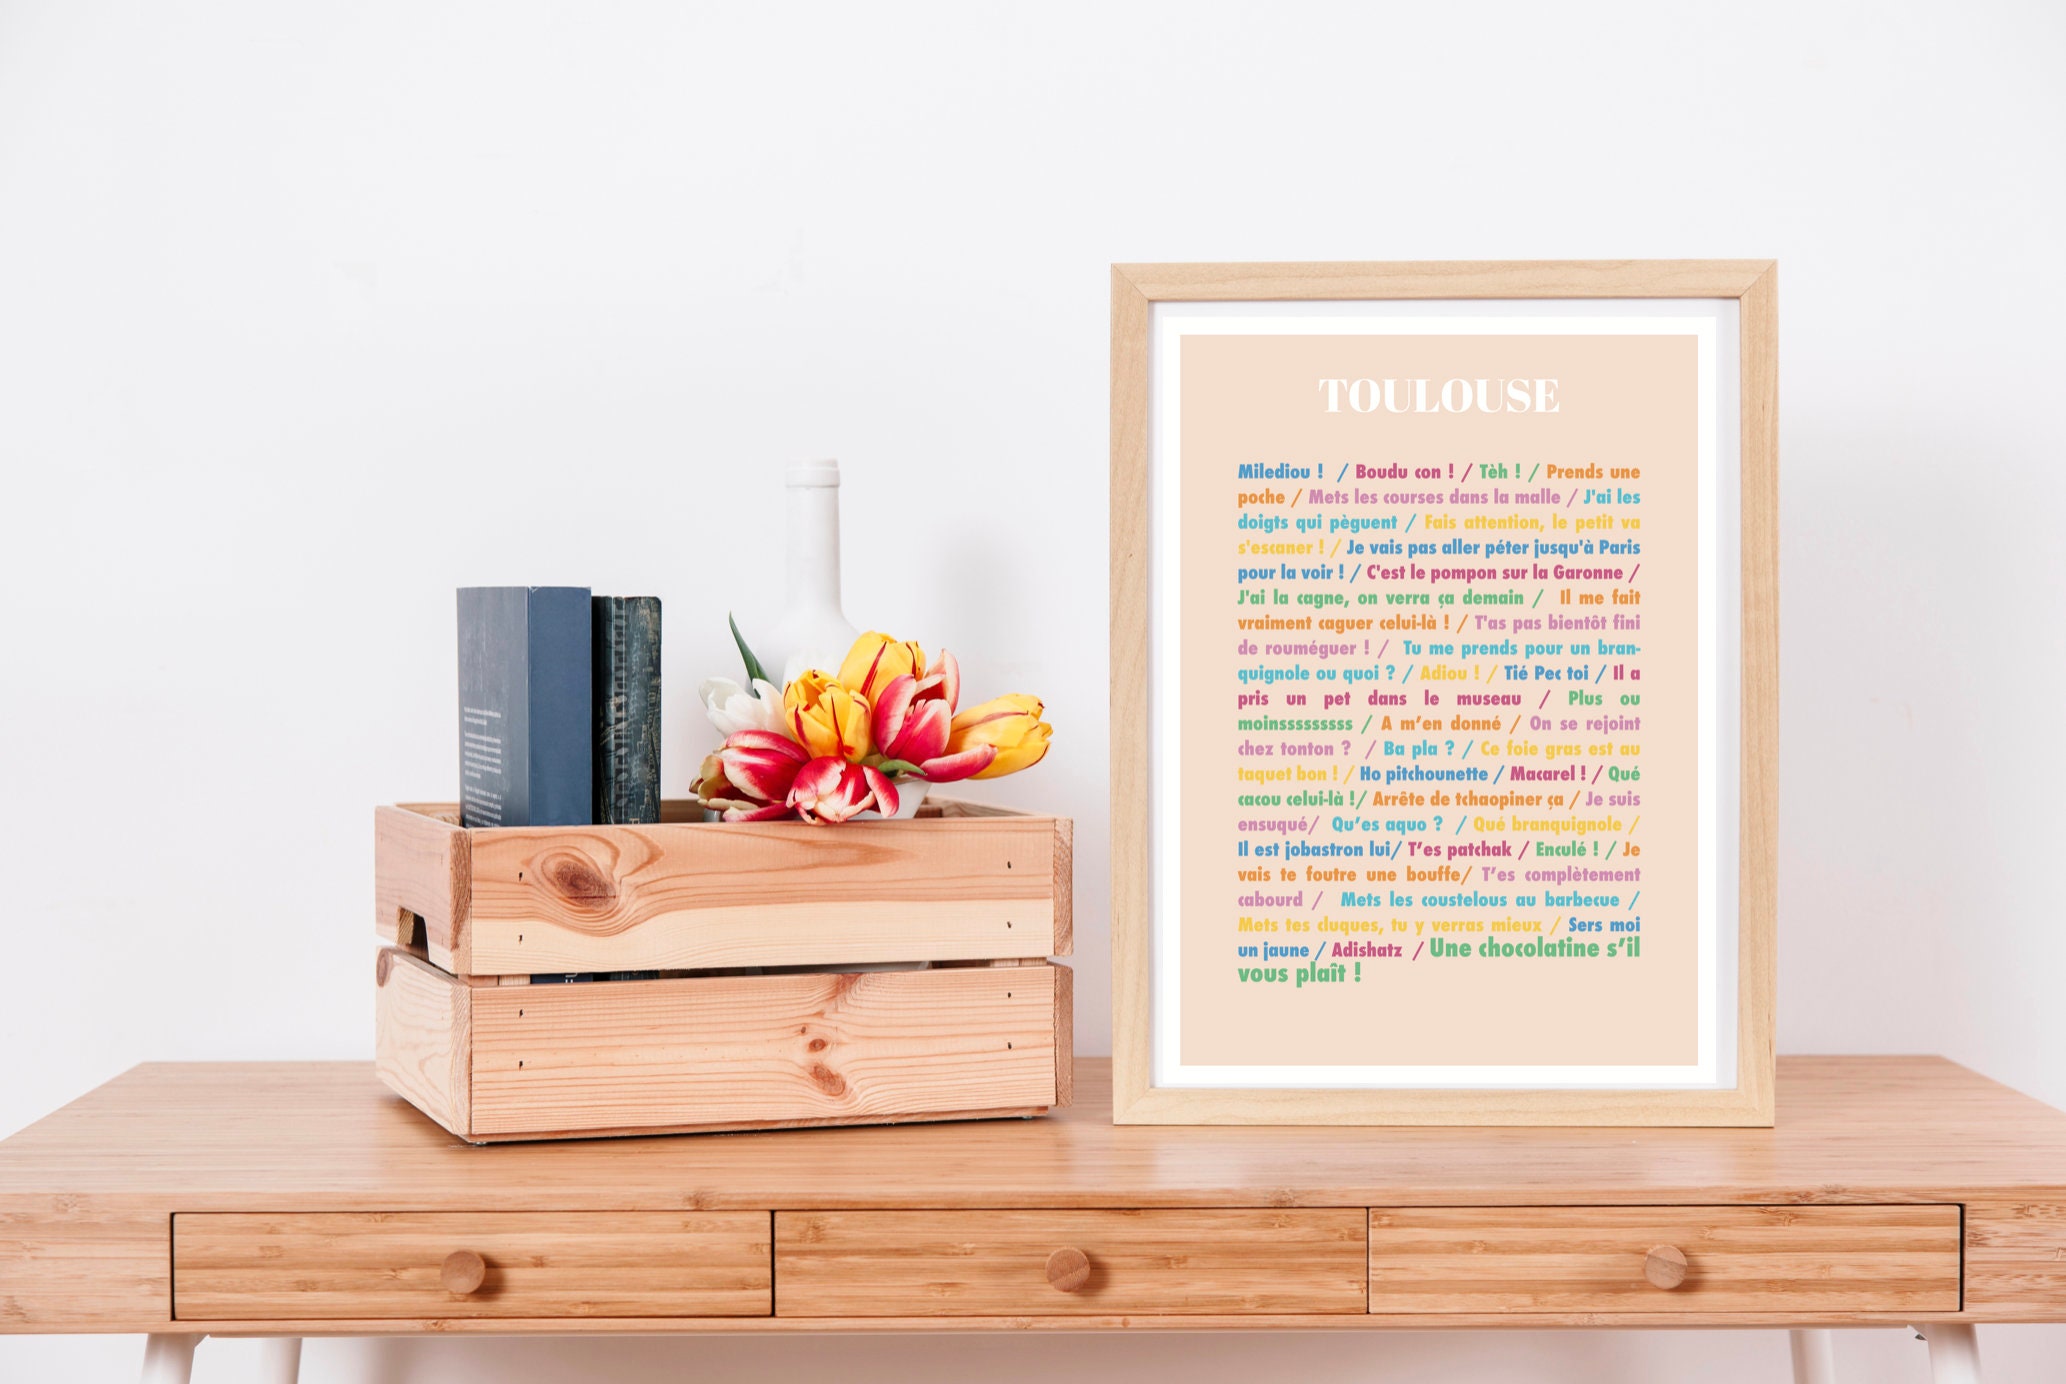 TOULOUSE
Milediou ! / Boudu con ! / Tèh ! / Prends une
poche / Mets les courses dans la malle / J'ai les
doigts qui pèguent / Fais attention, le petit va
s'escaner ! / Je vais pas aller péter jusqu'à Paris
pour la voir ! / C'est le pompon sur la Garonne /
J'ai la cagne, on verra ça demain / Il me fait
vraiment caguer celui-là ! / T'as pas bientôt fini
de rouméguer ! / Tu me prends pour un bran-
quignole ou quoi ? / Adiou ! / Tié Pec toi / Il a
pris un pet dans le museau / Plus ou
moinsssssssss / A m’en donné / On se rejoint
chez tonton ? / Ba pla ? / Ce foie gras est au
taquet bon ! / Ho pitchounette / Macarel ! / Qué
cacou celui-là !/ Arrête de tchaopiner ça / Je suis
ensuqué/ Qu’es aquo ? / Qué branquignole /
Il est jobastron lui/ T’es patchak / Enculé ! / Je
vais te foutre une bouffe/ T’es complètement
cabourd / Mets les coustelous au barbecue /
Mets tes cluques, tu y verras mieux / Sers moi
un jaune / Adishatz / Une chocolatine s’il
vous plaît !